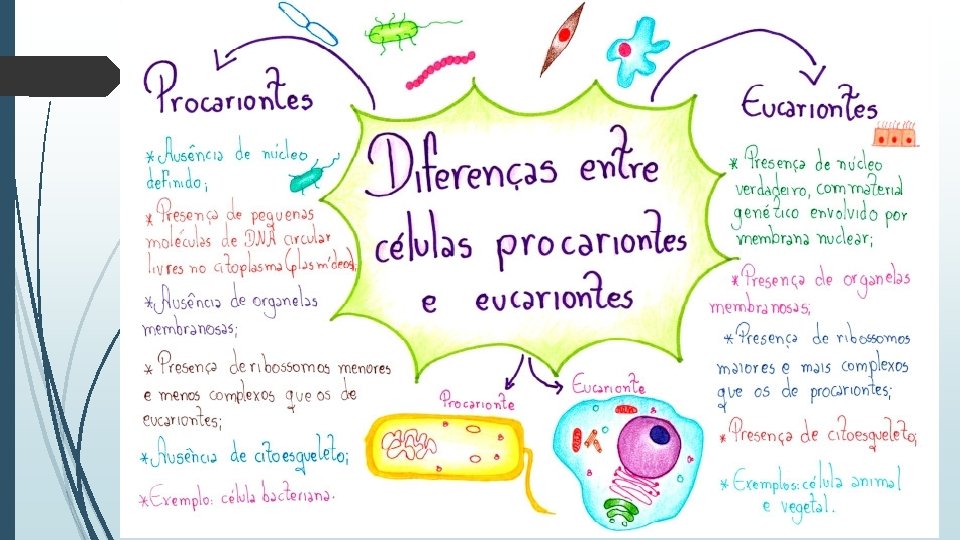 Procariontes
* Ausência de núcleo
definido;
* Presença de pequenas
moléculas de DNA circular
livres no citoplasma (plasmídeos);
* Ausência de organelas
membranosas;
* Presença de ribossomos menores
e menos complexos que os de
eucariontes;
* Ausência de citoesqueleto;
* Exemplo: célula bacteriana.
Diferenças entre
células procariontes
e eucariontes
Procarionte
Eucarionte
Eucariontes
* Presença de núcleo
verdadeiro, com material
genético envolvido por
membrana nuclear;
* Presença de organelas
membranosas;
* Presença de ribossomos
maiores e mais complexos
que os de procariontes;
* Presença de citoesqueleto;
* Exemplos: célula animal
e vegetal.